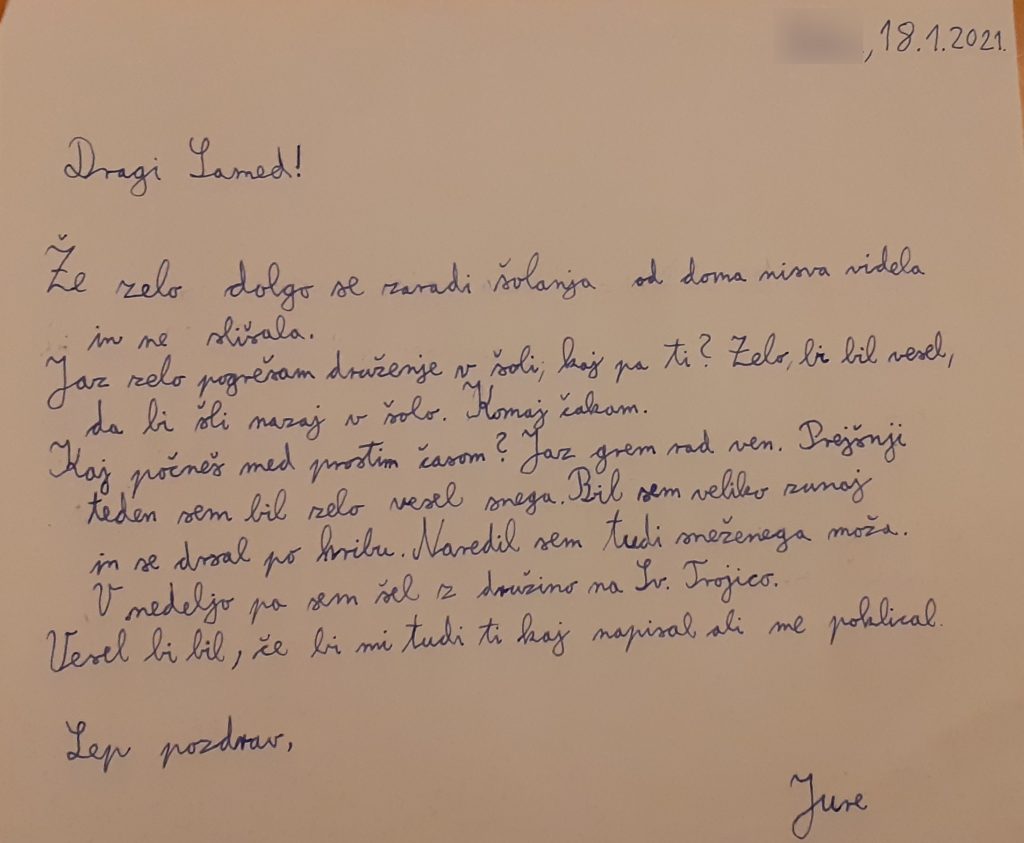 , 18.1.2021.
Dragi Samed!
Že zelo dolgo se zaradi šolanja od doma nisva videla
in ne slišala.
Jaz zelo pogrešam druženje v šoli, kaj pa ti? Zelo, bi bil vesel,
da bi šli nazaj v šolo. Komaj čakam.
Kaj počneš med prostim časom? Jaz grem rad ven. Prejšnji
teden sem bil zelo vesel snega. Bil sem veliko zunaj
in se drsal po hribu. Naredil sem tudi sneženega moža.
V nedeljo pa sem šel z družino na Sv. Trojico.
Vesel bi bil, če bi mi tudi ti kaj napisal ali me poklical.
Lep pozdrav,
Jure